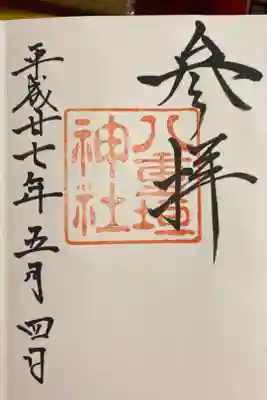 参拝
八重垣
神社
平成廿七年五月四日